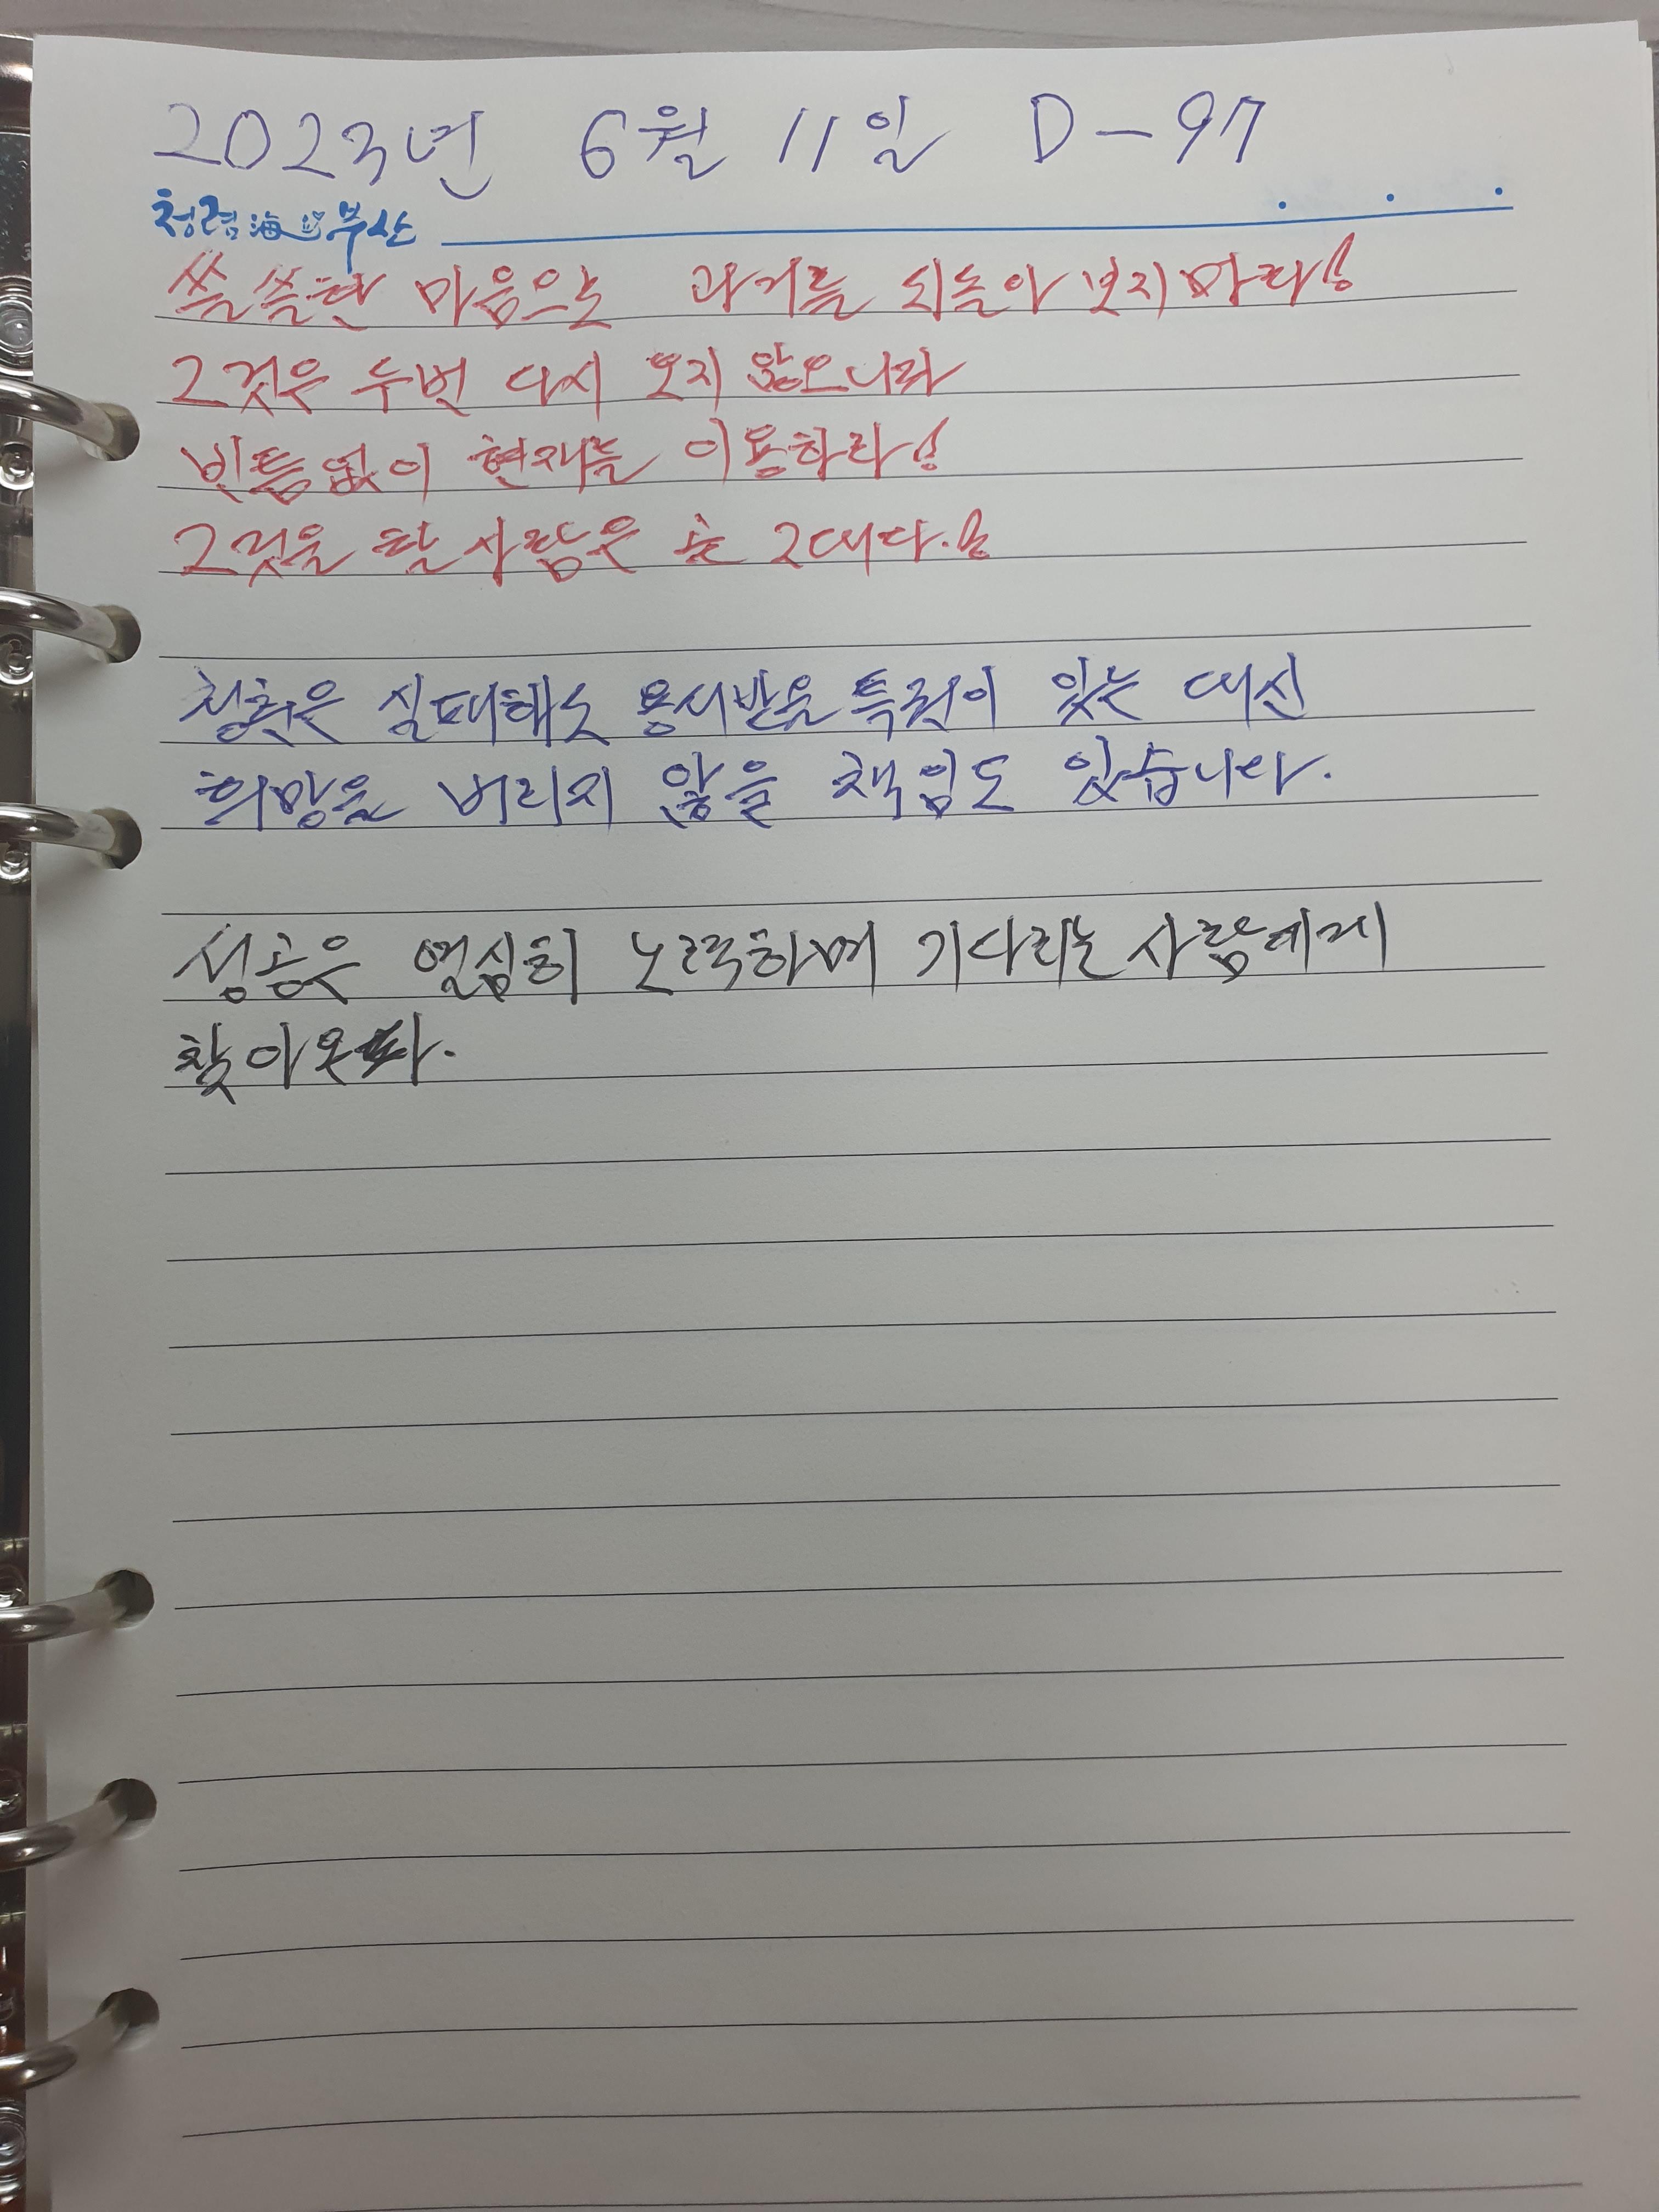 2023년 6월 11일 D-97
청렴海 부산
쓸쓸한 마음으로 과거를 되돌아 보지마라!
그것은 두번 다시 오지 않으니라
빈틈없이 현재를 이용하라!
그것을 할 사람은 곧 그대다.!
청춘은 실패해도 용서받을 특권이 있는 대신
희망을 버리지 않을 책임도 있습니다.
성공은 열심히 노력하며 기다리는 사람에게
찾아온다.